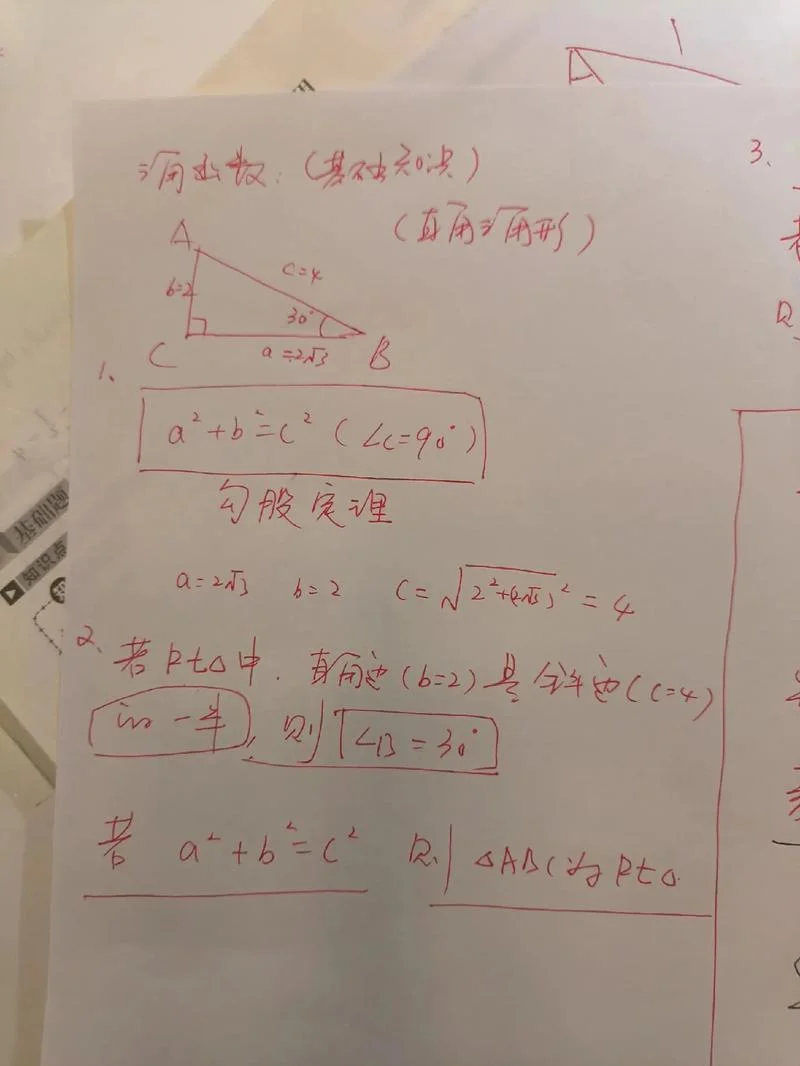 三角函数:(基础知识)
(直角三角形)
A
c=4
b=2
30°
C
a=2√3
B
1、
a²+b²=c² (∠C=90°)
勾股定理
a=2√3 b=2 c=√2²+(2√3)² =4
2、若Rt△中.直角边(b=2)是斜边(c=4)
的一半,则∠B=30°
若 a²+b²=c² 则 △ABC为Rt△.
3、
基础题
知识点